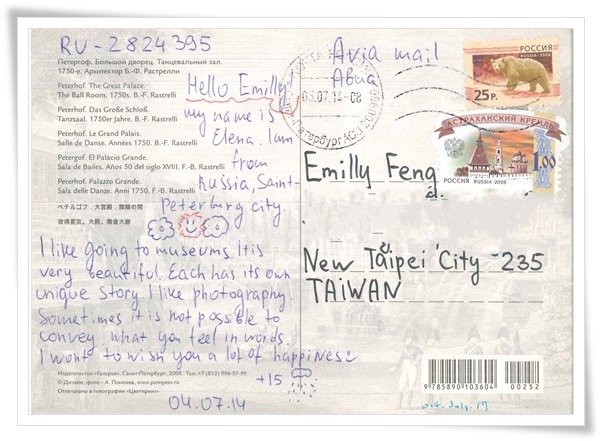 RU-2824395
Петергоф. Большой дворец. Танцевальный зал.
1750-е. Архитектор Б.-Ф. Растрелли
Peterhof. The Great Palace.
The Ball Room. 1750s. B.-F. Rastrelli
Peterhof. Das Große Schloß.
Tanzsaal. 1750er Jahre. B.-F. Rastrelli
Peterhof. Le Grand Palais.
Salle de Danse. Années 1750. B.-F. Rastrelli
Petergof. El Palacio Grande.
Sala de Bailes. Años 50 del siglo XVIII. F.-B. Rastrelli
Peterhof. Palazzo Grande.
Sala delle Danze. Anni 1750. F.-B. Rastrelli
ペテルゴフ 大宮殿 舞踏の間
彼得夏宮。大殿。舞会大殿
Hello Emilly!
my name is
Elena. I am
from
Russia, Saint-
Peterburg city
I like going to museums. It is
very beautiful. Each has its own
unique story. I like photography.
Sometimes it is not possible to
convey what you feel in words.
I want to wish you a lot of happiness
+15
Издательство «Галерея», Санкт-Петербург, 2009. Тел. +7 (812) 996-87-99
© Дизайн, фото - А. Помпеев, www.pompeev.ru
Отпечатано в типографии «Цветпринт»
04.07.14
Avia mail
Авиа
05.07.14-08
РОССИЯ
RUSSIA·2008
25 Р.
АСТРАХАНСКИЙ КРЕМЛЬ
1.00
РОССИЯ RUSSIA 2009
Emilly Feng
New Taipei City -235
TAIWAN
9785890103604 00252
014. July. 19